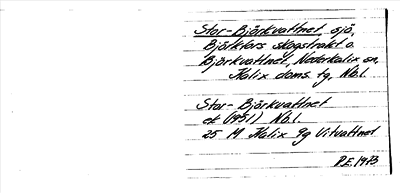 Stor-Björkvattnet, sjö,
Björkfors skogstrakt o.
Björkvattnet, Nederkalix sn,
Kalix doms. tg, Nb.l.
Stor-Björkvattnet
ek (1951) Nb.l.
25 M Kalix 9g Vitvattnet
P.E. 1973